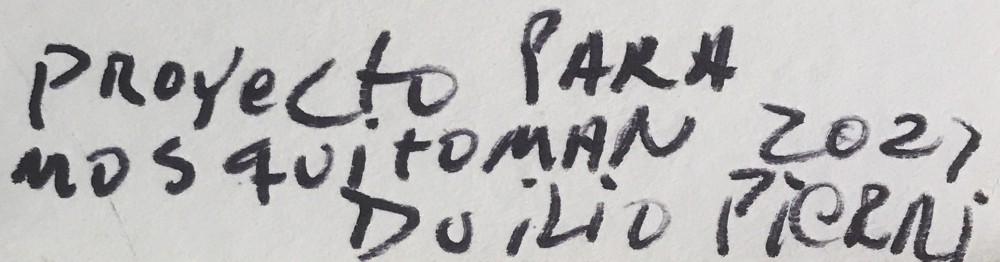 PROYECTO PARA
MOSQUITOMAN 2027
DUILIO PIERRI